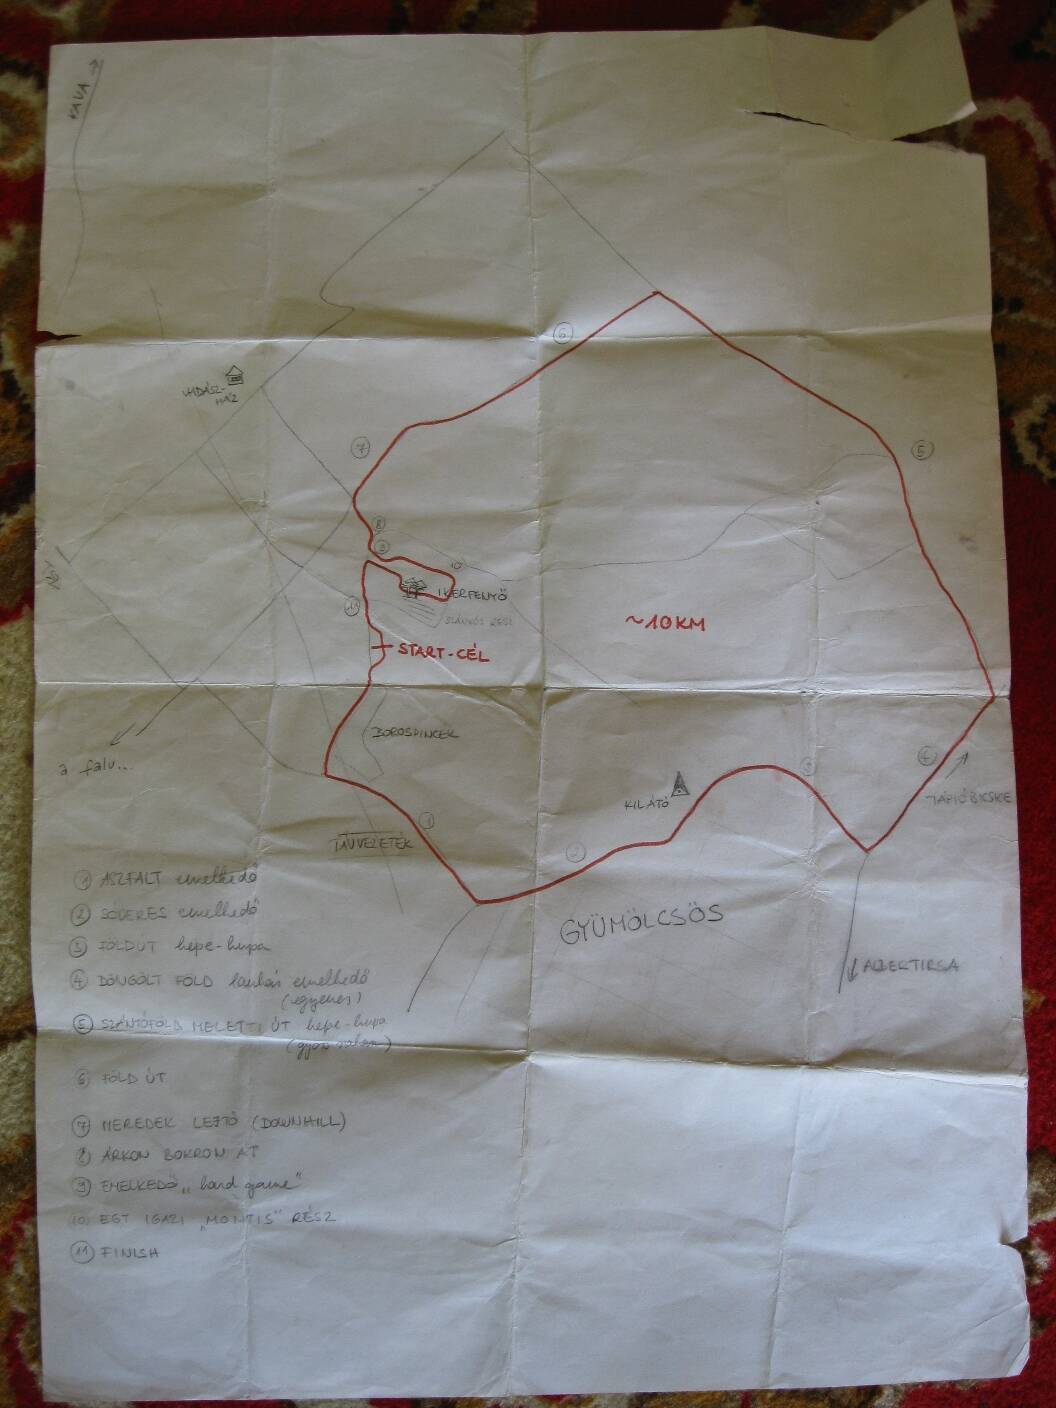 KÁVA
VADÁSZ-
HÁZ
6
7
5
8
9
10
IKERFENYŐ
11
~10KM
START-CÉL
BOROSPINCÉK
a falu...
KILÁTÓ
3
4
TÁPIÓBICSKE
TÁVVEZETÉK
1
2
GYÜMÖLCSÖS
ALBERTIRSA
1 ASZFALT emelkedő
2 SÓDERES emelkedő
3 FÖLDÚT hepe-hupa
4 DÖNGÖLT FÖLD lankás emelkedő
(egyenes)
5 SZÁNTÓFÖLD MELETTI ÚT hepe-hupa
6 FÖLD ÚT
7 MEREDEK LEJTŐ (DOWNHILL)
8 ÁRKON BOKRON ÁT
9 EMELKEDŐ „hard game"
10 EGY IGAZI „MONTIS" RÉSZ
11 FINISH